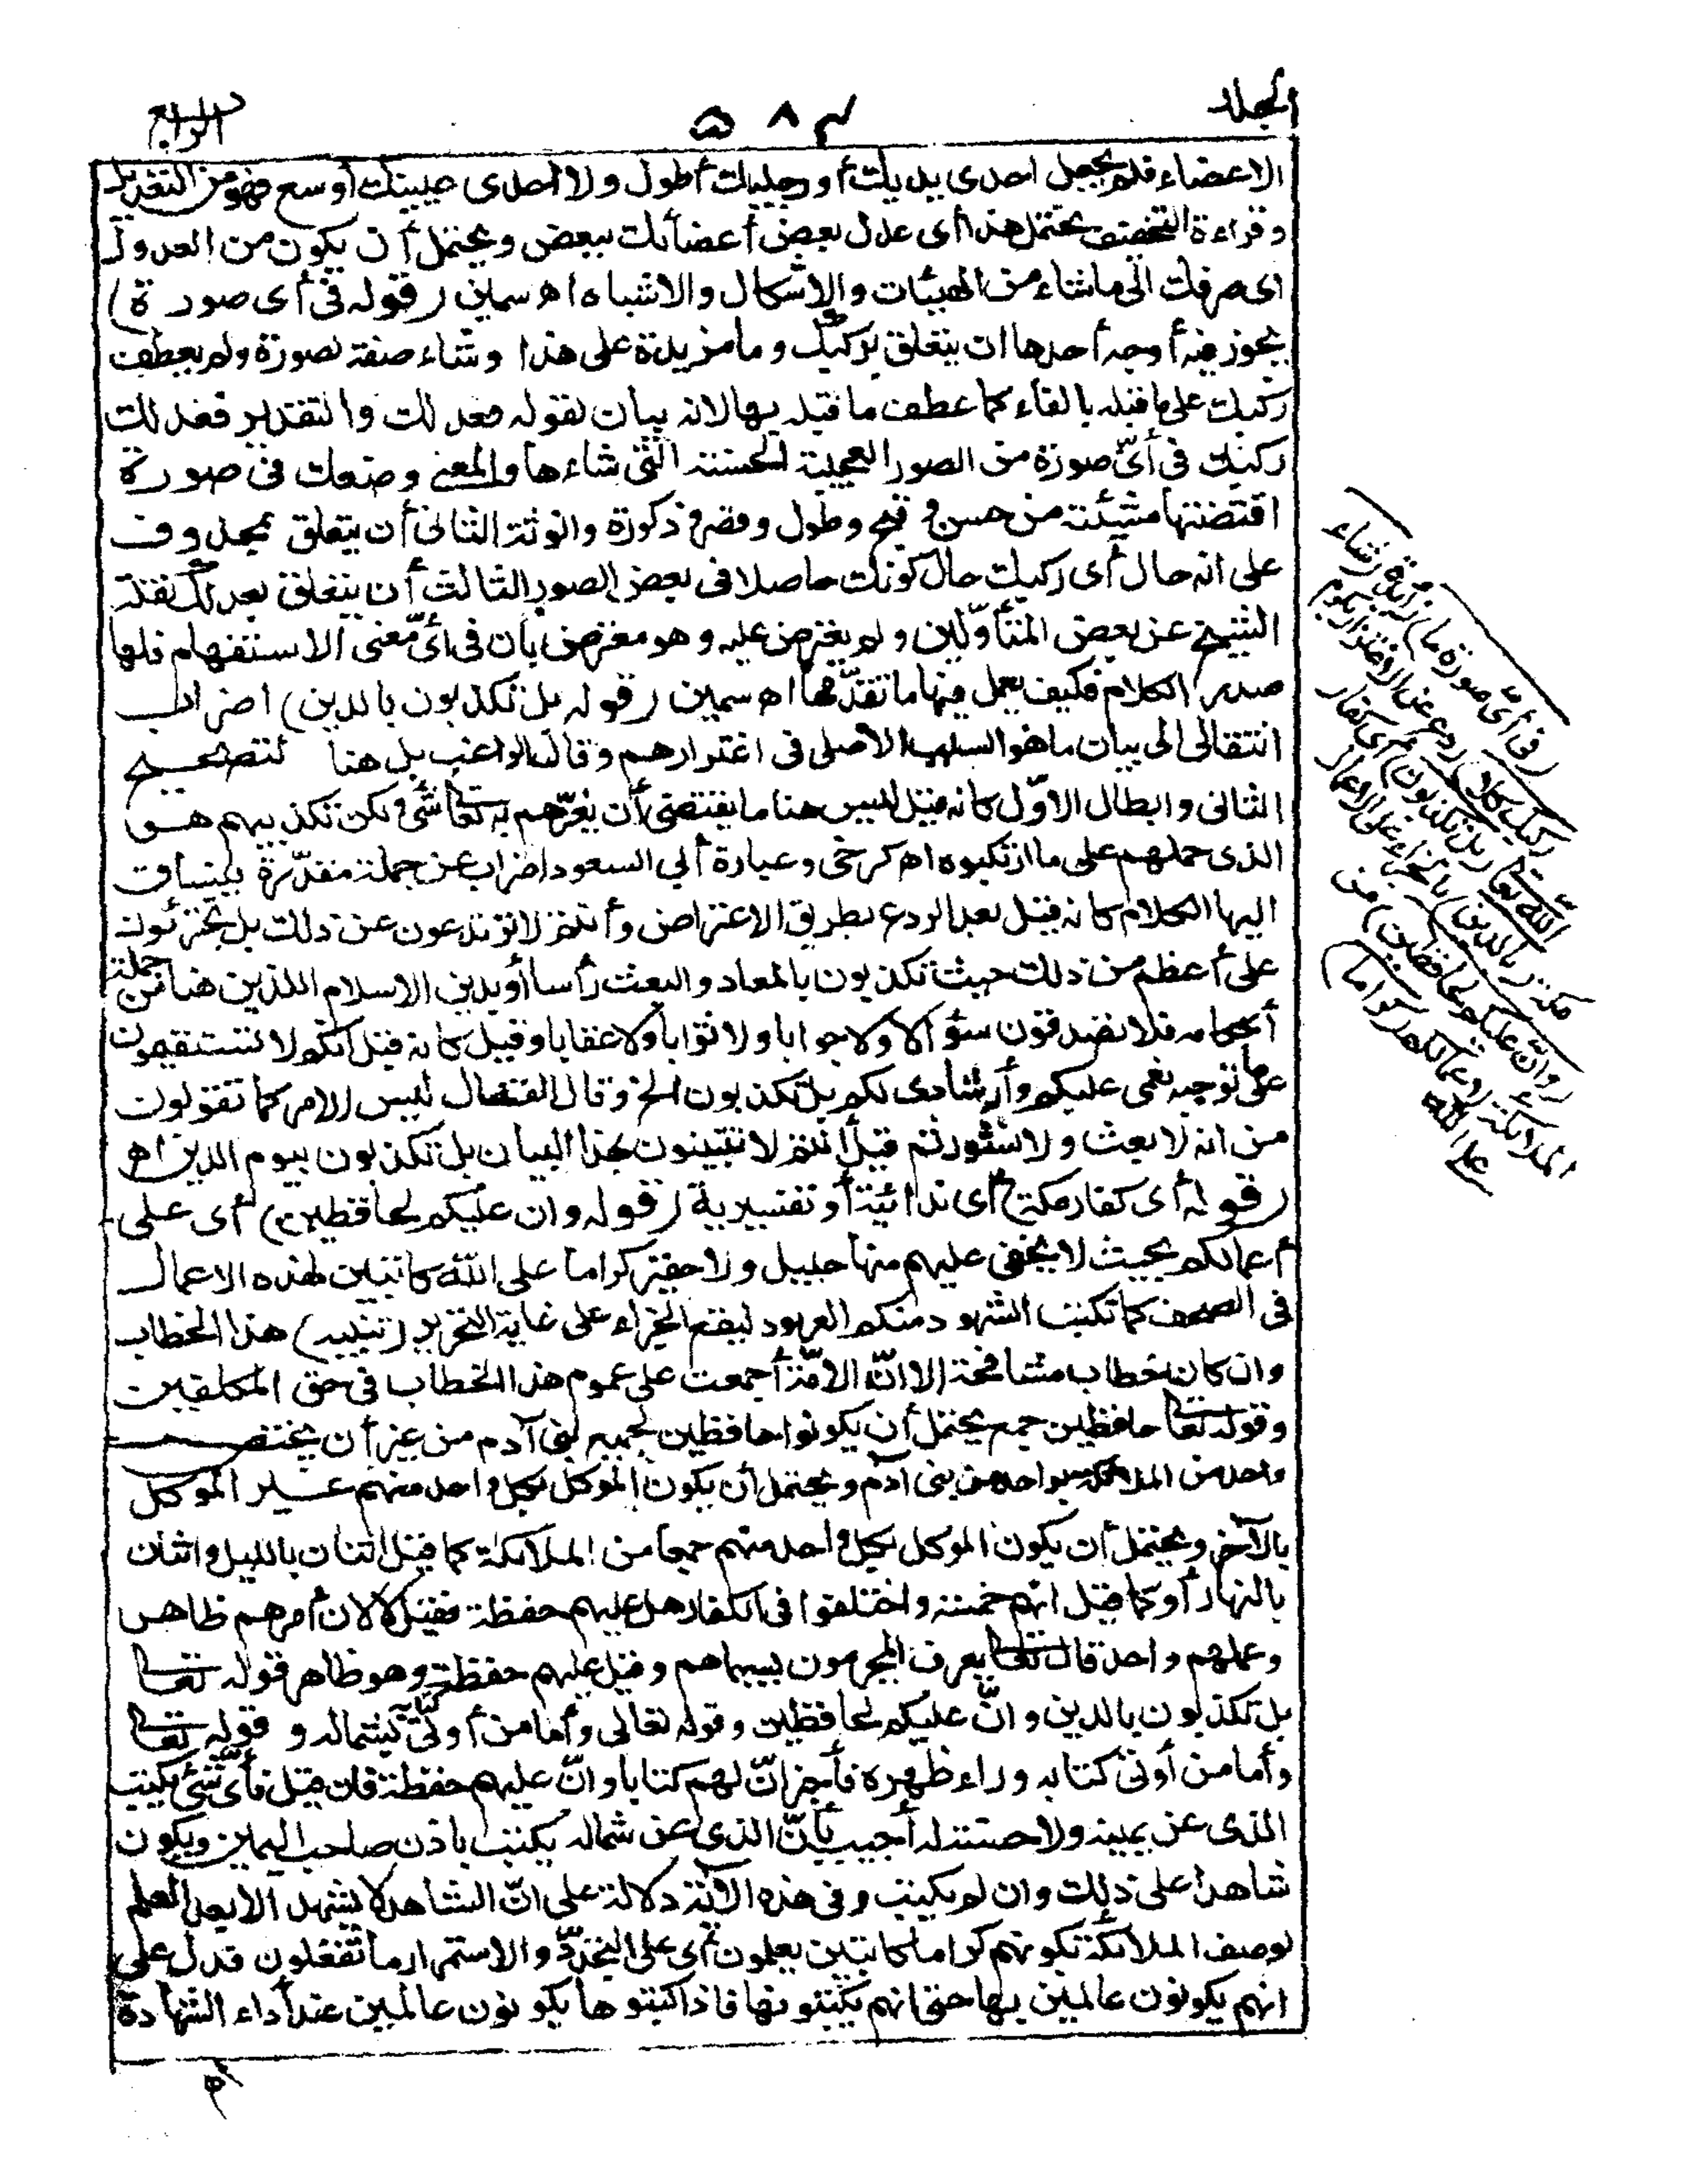 المجلد
٥٨٣
الرابع
الاعضاء فلم يجعل احدى يديك أو رجليك أطول ولا احدى عينيك أوسع فهو من التعديل
وقراءة التخفيف يحتمل هذا أى عدل بعض أعضائك ببعض ويحتمل أن يكون من العدول
اى صرفك الى ما شاء من الهيئات والاشكال والاشباه اه سمين (قوله فى أى صورة)
يجوز فيه أوجه أحدها ان يتعلق بركبك وما مزيدة على هذا وشاء صفة لصورة ولم يعطف
ركبك على ما قبله بالفاء كما عطف ما قبله بها لانه بيان لقوله فعدلك والتقدير فعدلك
ركبك فى أىّ صورة من الصور العجيبة الحسنة التى شاءها والمعنى وضعك فى صورة
اقتضتها مشيئته من حسن وقبح وطول وقصر وذكورة وانوثة الثانى أن يتعلق بمحذوف
على انه حال أى ركبك حال كونك حاصلا فى بعض الصور الثالث أن يتعلق بعدلك نقله
الشيخ عن بعض المتأوّلين ولم يعترض عليه وهو معترض بأن فى أىّ معنى الاستفهام فلها
صدر الكلام فكيف يعمل فيها ما تقدّمها اه سمين (قوله بل تكذبون بالدين) اضراب
انتقالى الى بيان ما هو السبب الاصلى فى اغترارهم وقال الراغب بل هنا لتصحيح
الثانى وابطال الاوّل كانه قيل ليس هنا ما يقتضى أن يغرّهم به تعالى شئ ولكن تكذيبهم هو
الذى حملهم على ما ارتكبوه اه كرخى وعبارة أبي السعود اضراب عن جملة مقدّرة ينساق
اليها الكلام كانه قيل بعد الردع بطريق الاعتراض وأنتم لا ترتدعون عن ذلك بل تجترئون
على أعظم من ذلك حيث تكذبون بالمعاد والبعث رأسا أو بدين الاسلام اللذين هما من جملة
أحكامه فلا تصدقون سؤالا ولا جوابا ولا ثوابا ولا عقابا وقيل كانه قيل انكم لا تستقيمون
على ما توجبه نعمى عليكم وارشادى لكم بل تكذبون الخ وقال القفال ليس الامر كما تقولون
من انه لا بعث ولا نشور ثم قيل أنتم لا تتبينون بهذا البيان بل تكذبون بيوم الدين اه
(قوله أى كفار مكة) أى ندائية أو تفسيرية (قوله وان عليكم لحافظين) أى على
أعمالكم بحيث لا يخفى عليهم منها جليل ولا حقير كراما على الله كاتبين لهذه الاعمال
فى الصحف كما تكتب الشهود منكم العهود ليقع الجزاء على غاية التحرير (تنبيه) هذا الخطاب
وان كان خطاب مشافهة الا انّ الامّة أجمعت على عموم هذا الخطاب فى حق المكلفين
وقوله تعالى حافظين جمع يحتمل أن يكونوا حافظين لجميع بنى آدم من غير أن يختص
واحد من الملائكة بواحد من بنى آدم ويحتمل أن يكون الموكل بكل واحد منهم غير الموكل
بالآخر ويحتمل أن يكون الموكل بكل واحد منهم جمعا من الملائكة كما قيل اثنان بالليل واثنان
بالنهار أو كما قيل انهم خمسة واختلفوا فى الكفار هل عليهم حفظة فقيل لا لان أمرهم ظاهر
وعملهم واحد قال تعالى يعرف المجرمون بسيماهم وقيل عليهم حفظة وهو ظاهر قوله تعالى
بل تكذبون بالدين وانّ عليكم لحافظين وقوله تعالى وأما من أوتى كتابه بشماله وقوله تعالى
وأما من أوتى كتابه وراء ظهره فأخبر انّ لهم كتابا وانّ عليهم حفظة فان قيل فأىّ شئ يكتب
الذى عن يمينه ولا حسنة له أجيب بأنّ الذى عن شماله يكتب باذن صاحب اليمين ويكون
شاهدا على ذلك وان لم يكتب وفى هذه الآية دلالة على انّ الشاهد لا يشهد الا بعد العلم
لوصف الملائكة بكونهم كراما كاتبين يعلمون أى على التجدّد والاستمرار ما تفعلون فدل على
انهم يكونون عالمين بها حتى انهم يكتبونها فاذا كتبوها يكونون عالمين عند أداء الشهادة
(فى أىّ صورة ما) زائدة (شاء
ركبك كلا) ردع عن الاغترار بكرم
الله تعالى (بل تكذبون) أى كفار
مكة (بالدين) بالجزاء على الاعمال
(وانّ عليكم لحافظين) من
الملائكة لاعمالكم (كراما)
على الله